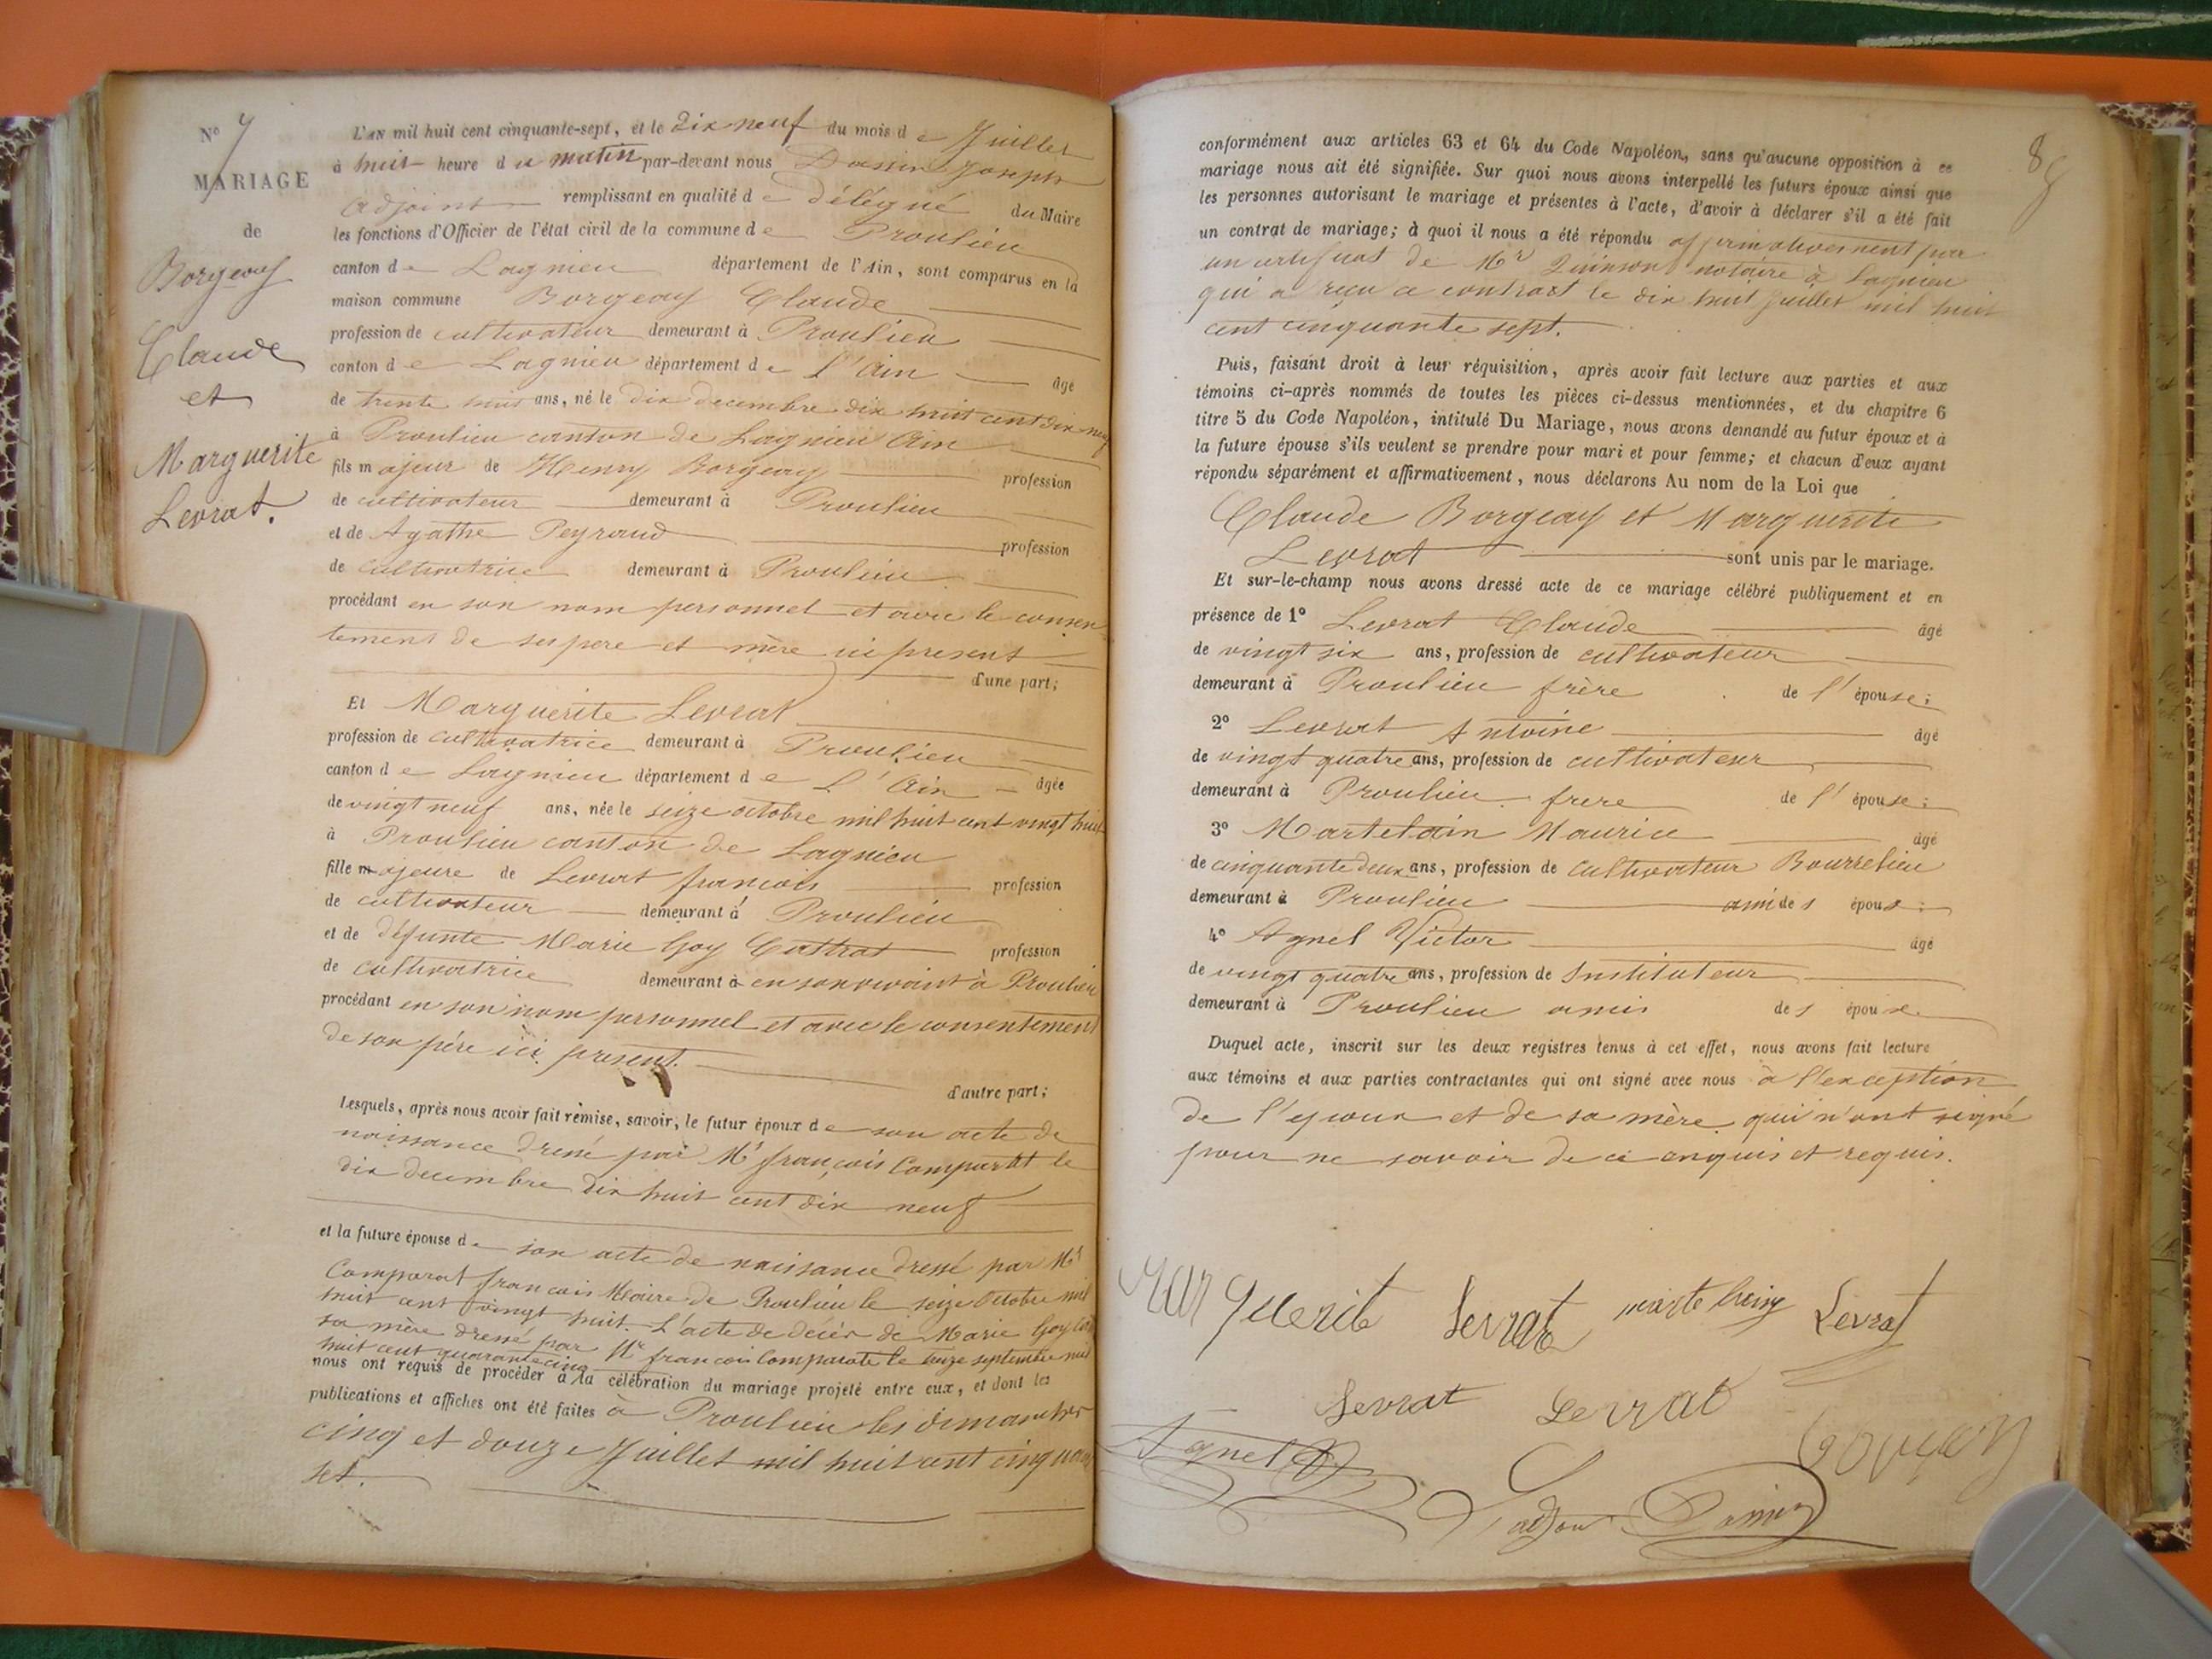 N° 7
MARIAGE
de
Borgeay
Claude
et
Marguerite
Levrat.
L'AN mil huit cent cinquante-sept, et le dix neuf du mois de Juillet
à huit heure du matin par-devant nous Joseph
adjoint remplissant en qualité de délégué du Maire
les fonctions d'Officier de l'état civil de la commune de Proulieu
canton de Lagnieu département de l'Ain, sont comparus en la
maison commune Borgeay Claude
profession de cultivateur demeurant à Proulieu
canton de Lagnieu département de l'Ain âgé
de trente huit ans, né le dix decembre dix huit cent dix neuf
à Proulieu canton de Lagnieu Ain
fils majeur de Henry Borgeay profession
de cultivateur demeurant à Proulieu
et de Agathe Peyraud profession
de cultivatrice demeurant à Proulieu
procédant en son nom personnel et avec le consen
tement de ses pere et mère ici present
d'une part;
Et Marguerite Levrat
profession de cultivatrice demeurant à Proulieu
canton de Lagnieu département de L'Ain âgée
de vingt neuf ans, née le seize octobre mil huit cent vingt huit
à Proulieu canton de Lagnieu
fille majeure de Levrat françois profession
de cultivateur demeurant à Proulieu
et de défunte Marie Goy profession
de cultivatrice demeurant à en son vivant à Proulieu
procédant en son nom personnel et avec le consentement
de son père ici present.
d'autre part;
Lesquels, après nous avoir fait remise, savoir, le futur époux de son acte de
naissance dressé par Mr françois Comparat le
dix decembre dix huit cent dix neuf
et la future épouse de son acte de naissance dressé par Mr
Comparat françois Maire de Proulieu le seize Octobre mil
huit cent vingt huit. L'acte de décès de Marie Goy
sa mère dressé par Mr françois Comparat le septembre mil
huit cent quarante cinq
nous ont requis de procéder à la célébration du mariage projeté entre eux, et dont les
publications et affiches ont été faites à Proulieu les dimanches
cinq et douze Juillet mil huit cent cinquante
set.
89
conformément aux articles 63 et 64 du Code Napoléon, sans qu'aucune opposition à ce
mariage nous ait été signifiée. Sur quoi nous avons interpellé les futurs époux ainsi que
les personnes autorisant le mariage et présentes à l'acte, d'avoir à déclarer s'il a été fait
un contrat de mariage; à quoi il nous a été répondu affirmativement par
un certificat de Mr Quinson notaire à Lagnieu
qui a reçu ce contract le dix huit juillet mil huit
cent cinquante sept.
Puis, faisant droit à leur réquisition, après avoir fait lecture aux parties et aux
témoins ci-après nommés de toutes les pièces ci-dessus mentionnées, et du chapitre 6
titre 5 du Code Napoléon, intitulé Du Mariage, nous avons demandé au futur époux et à
la future épouse s'ils veulent se prendre pour mari et pour femme; et chacun d'eux ayant
répondu séparément et affirmativement, nous déclarons Au nom de la Loi que
Claude Borgeay et Marguerite
Levrat sont unis par le mariage.
Et sur-le-champ nous avons dressé acte de ce mariage célébré publiquement et en
présence de 1° Levrat Claude âgé
de vingt six ans, profession de cultivateur
demeurant à Proulieu frère de l'épouse;
2° Levrat Antoine âgé
de vingt quatre ans, profession de cultivateur
demeurant à Proulieu frere de l'épouse;
3° Martelain Maurice âgé
de cinquante deux ans, profession de cultivateur Bourrelieu
demeurant à Proulieu ami des époux;
4° Agnel Victor âgé
de vingt quatre ans, profession de Instituteur
demeurant à Proulieu amis des époux.
Duquel acte, inscrit sur les deux registres tenus à cet effet, nous avons fait lecture
aux témoins et aux parties contractantes qui ont signé avec nous à l'exception
de l'époux et de sa mère qui n'ont signé
pour ne savoir de ce enquis et requis.
Marguerite Levrat Levrat
Levrat Levrat
Agnel